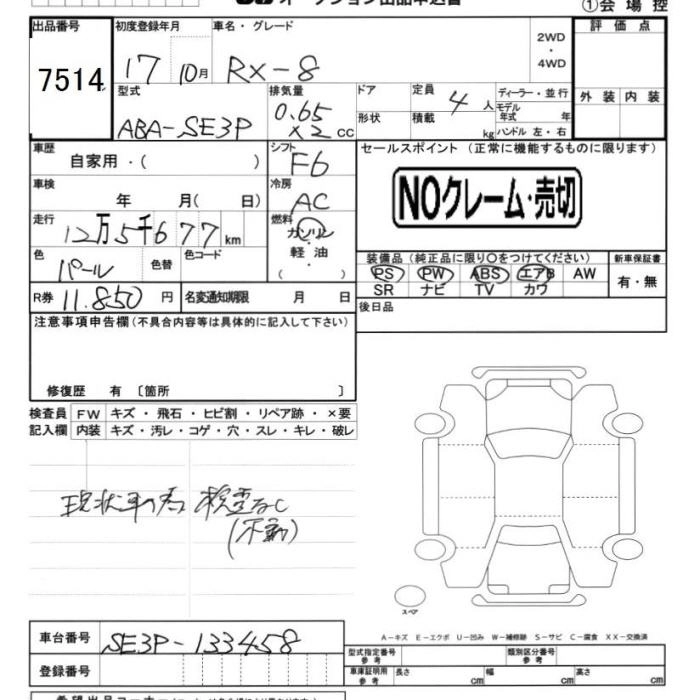 オークション出品申込書 ①会場控
出品番号 7514
初度登録年月 17 10月
車名・グレード RX-8
2WD ・ 4WD
評価点
外装 内装
型式 ABA-SE3P
排気量 0.65 ×2 cc
ドア
形状
定員 4人
積載 kg
ディーラー・並行
モデル年式 年
ハンドル 左・右
車歴 自家用・( )
シフト F6
セールスポイント (正常に機能するものに限ります)
NOクレーム・売切
車検 年 月( 日)
冷房 AC
走行 12万5千677km
燃料 ガソリン 軽油 ( ・ )
色 パール
色替
色コード
装備品 (純正品に限り○をつけてください)
PS PW ABS エアB AW
SR ナビ TV カワ
新車保証書 有・無
R券 11.850円
名変通知期限 月 日
後日品
注意事項申告欄(不具合内容等は具体的に記入して下さい)
修復歴 有 〔箇所 〕
検査員 FW キズ・飛石・ヒビ割・リペア跡・×要
記入欄 内装 キズ・汚レ・コゲ・穴・スレ・キレ・破レ
現状車の為 検査なし
(不動)
スペア
A-キズ E-エクボ U-凹み W-補修跡 S-サビ C-腐食 XX-交換済
車台番号 SE3P-133458
型式指定番号 参考
類別区分番号 参考
登録番号
車庫証明用 参考 長さ cm 幅 cm 高さ cm